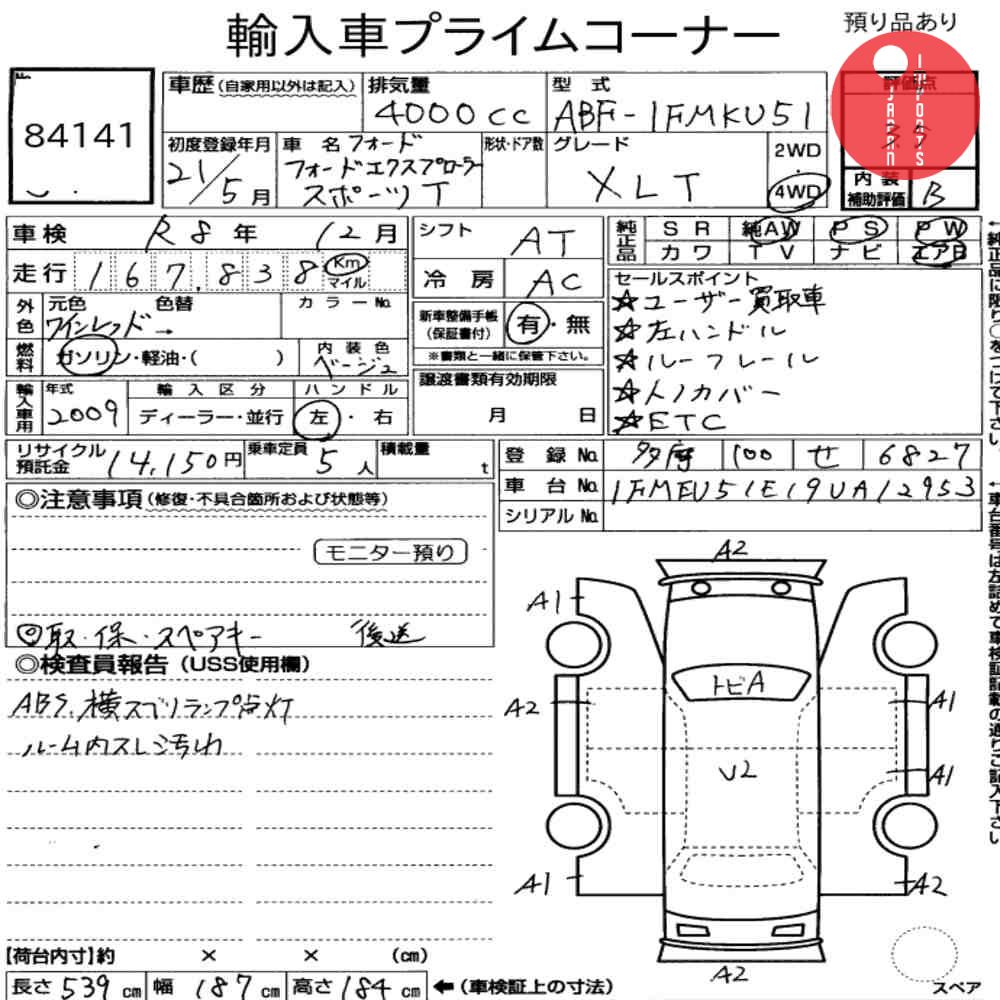 輸入車プライムコーナー
預り品あり
JAPAN IMPORTS
No.
84141
車歴 (自家用以外は記入)
排気量
4000cc
型式
ABF-1FMKU51
評価点
初度登録年月
21/5月
車名 フォード
フォードエクスプローラー
スポーツT
形状・ドア数
グレード
XLT
2WD
4WD
内装
補助評価
B
車検 R8年 12月
走行 167,838 Km
マイル
シフト AT
冷房 AC
純正品
SR 純AW PS PW
カワ TV ナビ エアB
外色
元色
ワインレッド→
色替
カラーNo.
燃料
ガソリン・軽油・( )
内装色
ベージュ
新車整備手帳
(保証書付)
有・無
※書類と一緒に保管下さい。
セールスポイント
☆ユーザー買取車
☆左ハンドル
☆ルーフレール
☆トノカバー
☆ETC
輸入車用
年式
2009
輸入区分
ディーラー・並行
ハンドル
左・右
譲渡書類有効期限
月 日
リサイクル
預託金
14,150円
乗車定員
5人
積載量
t
登録No. 多摩 100 せ 6827
車台No. 1FMEU51E19UA12953
シリアルNo.
◎注意事項 (修復・不具合箇所および状態等)
モニター預り
◎取・保・スペアキー 後送
◎検査員報告 (USS使用欄)
ABS、横スベリランプ点灯
ルーム内スレ汚れ
A2
A1
トビA
A2
A1
U2
A1
A1
A2
A2
スペア
【荷台内寸】約 × × (cm)
長さ 539cm 幅 187cm 高さ 184cm ←(車検証上の寸法)
←純正品に限り○をつけて下さい。
←車台番号は左詰めで車検証記載の通りご記入下さい